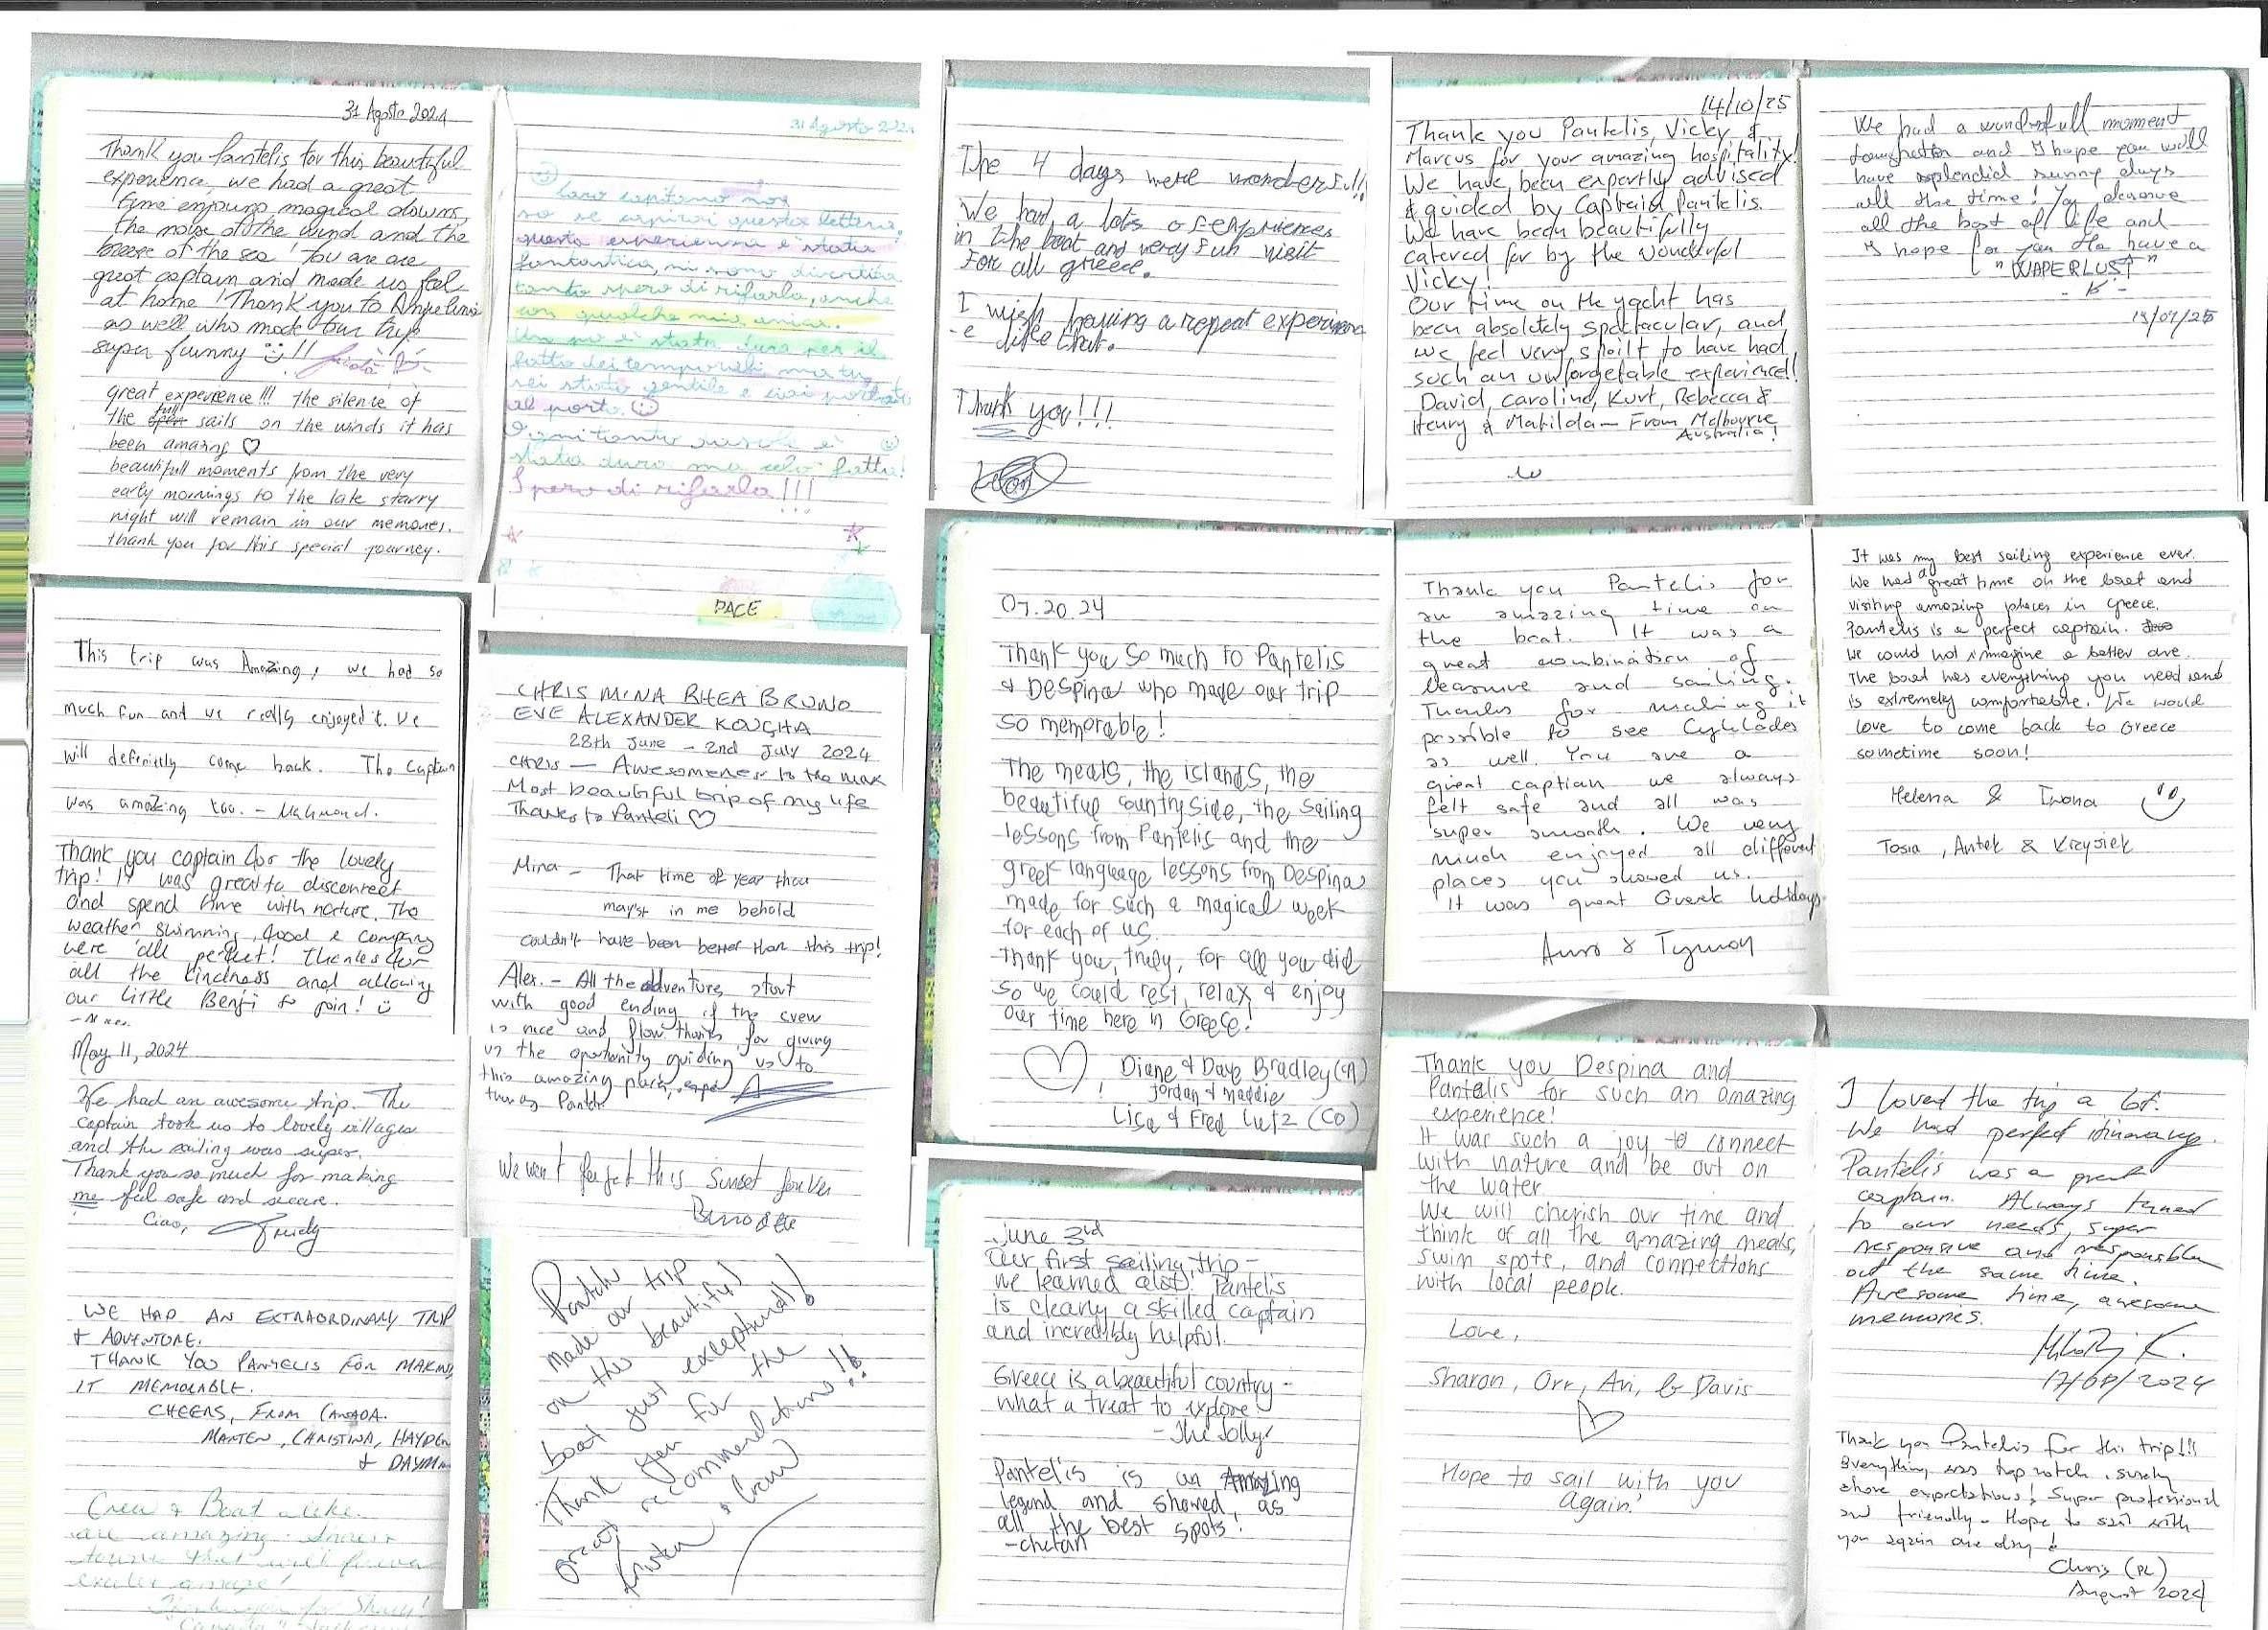 31 Agosto 2024
Thank you Pantelis for this beautiful
experience, we had a great
time enjoying magical downs,
the noise of the wind and the
breeze of the sea! You are are
great captain and made us feel
at home! Thank you to Angelina
as well who made our trip
super funny !!
great experience!!! the silence of
the full sails on the winds it has
been amazing ♡
beautifull moments from the very
early mornings to the late starry
night will remain in our memories.
thank you for this special journey.
31 Agosto 2024
Caro capitano non
so se capirai questa lettera,
questa esperienza è stata
fantastica, mi sono divertita
tanto spero di rifarla, anche
con qualche mia amica.
Un po è stata dura per il
fatto dei temporali ma tu
sei stato gentile e ci ai portato
al porto. ☺
Ogni tanto è
stata dura ma celo fatta!
Spero di rifarla!!!
PACE
The 4 days were wonderfull!
We had a lots of experiences
in the boat and very fun visit
for all greece.
I wish having a repeat experienc
-e like that.
Thank you!!!
14/10/25
Thank you Pantelis, Vicky &
Marcus for your amazing hospitality!
We have been expertly advised
& guided by Captain Pantelis.
We have been beautifully
catered for by the wonderful
Vicky!
Our time on the yacht has
been absolutely spectacular, and
we feel very spoilt to have had
such an unforgetable experience!
David, Caroline, Kurt, Rebecca &
Henry & Matilda — From Melbourne
Australia!
We had a wonderfull moment
and I hope you will
have splendid sunny days
all the time! You deserve
all the best of life and
I hope for you to have a
"WAPERLUST"
19/07/25
This trip was Amazing, we had so
much fun and we really enjoyed it. We
will definietly come back. The Captain
was amazing too. - Mahmoud.
Thank you captain for the lovely
trip! It was great to disconnect
and spend time with nature. The
weather, swimming, food & company
were all perfect! Thanks for
all the kindness and allowing
our little Benji to join! ☺
May 11, 2024
We had an awesome trip. The
captain took us to lovely villages
and the sailing was super.
Thank you so much for making
me feel safe and secure.
Ciao,
WE HAD AN EXTRAORDINARY TRIP
& ADVENTURE.
THANK YOU PANTELIS FOR MAKING
IT MEMORABLE.
CHEERS, FROM CANADA.
MARTEN, CHRISTINA, HAYDEN
& DAYMN
Crew & Boat alike
are amazing.
"Canada"
CHRIS MINA RHEA BRUNO
EVE ALEXANDER KOUGHA
28th June – 2nd July 2024
CHRIS — Awesomeness to the max
Most beautiful trip of my life
Thanks to Panteli ♡
Mina - That time of year thou
may'st in me behold
couldn't have been better than this trip!
Alex. - All the adventure start
with good ending if the crew
is nice and flow thanks for giving
us the oportunity guiding us to
this amazing place,
We wont forget this Sunset forever
Pantelis
made our trip
on this beautiful
boat just exceptional!
Thank you for the
great recommendations!!
07.20.24
Thank you so much to Pantelis
& Despina who made our trip
so memorable!
The meals, the islands, the
beautiful countryside, the sailing
lessons from Pantelis and the
greek language lessons from Despina
made for such a magical week
for each of us.
Thank you, truly, for all you did
so we could rest, relax & enjoy
our time here in Greece!
Diane & Dave Bradley (CA)
Jordan & Maddie
Lisa & Fred Lutz (CO)
June 3rd
Our first sailing trip -
we learned alot! Pantelis
is clearly a skilled captain
and incredibly helpful.
Greece is a beautiful country -
what a treat to explore!
- The Jollys
Pantelis is an Amazing
legend and showed us
all the best spots!
- Chetan
Thank you Pantelis for
an amazing time on
the boat. It was a
great combination of
leasure and sailing.
Thanks for making it
possible to see Cyklades
as well. You are a
great captian we always
felt safe and all was
super smooth. We very
much enjoyed all different
places you showed us.
It was great Greek holidays
It was my best sailing experience ever.
We had a great time on the boat and
visiting amazing places in Greece.
Pantelis is a perfect captain.
We could not imagine a better one.
The boat has everything you need and
is extremely comfortable. We would
love to come back to Greece
sometime soon!
Helena & Iwona
Tosia, Antek & Krzysiek
Thank you Despina and
Pantelis for such an amazing
experience!
It was such a joy to connect
with nature and be out on
the water.
We will cherish our time and
think of all the amazing meals,
swim spots, and connections
with local people.
Love,
Sharon, Orr, Ari, & Davis
Hope to sail with you
again!
I loved the trip a lot.
We had perfect itinerary.
Pantelis was a great
captain. Always tuned
to our needs, super
responsive and responsible
at the same time.
Awesome time, awesome
memories.
17/08/2024
Thank you Pantelis for this trip!!!
Everything was top notch, surely
above expectations! Super professional
and friendly. Hope to sail with
you again one day!
Chris (PL)
August 2024